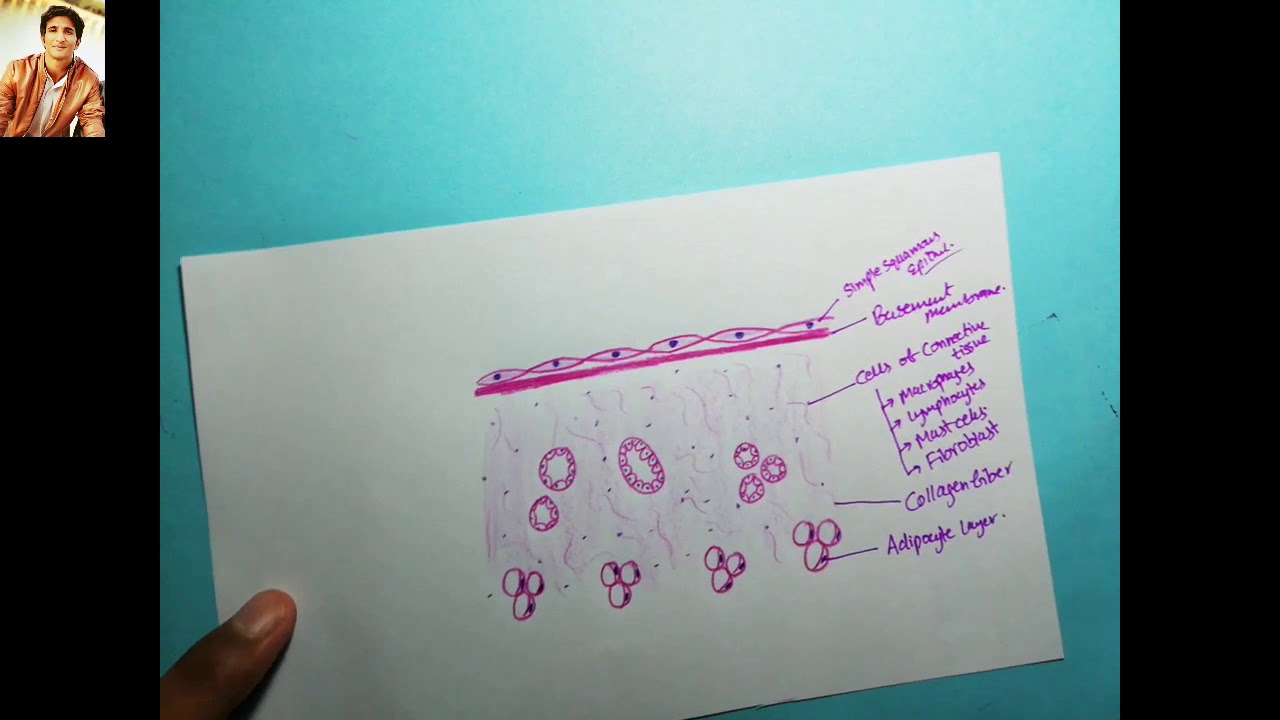 Simple squamous
Epithe.
Basement
membrane.
Cells of Connective
tissue
→ Macrophages
→ Lymphocytes
→ Mast cells.
→ Fibroblast
Collagen fiber
Adipocyte Layer.